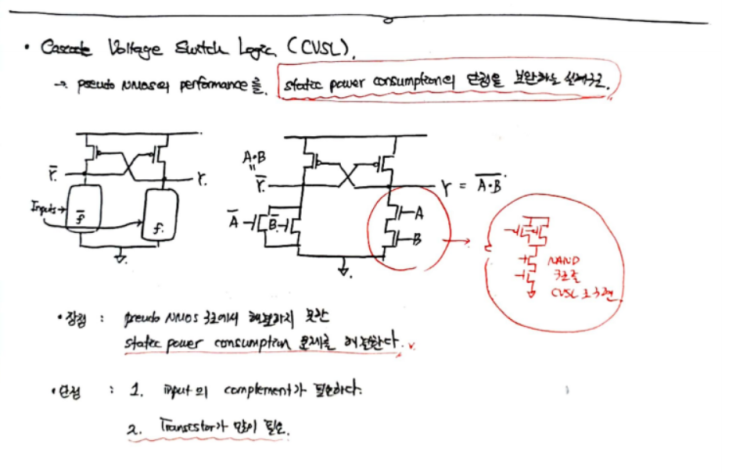 • Cascode Voltage Switch Logic (CVSL).
→ pseudo NMOS의 performance을. static power consumption의 단점을 보완하는 설계구조.
A•B
Y̅. Y. Y̅. Y = \overline{A•B}
Inputs → f̅ f. A̅ B̅ A
B
NAND
구조를
CVSL로 구현.
• 장점 : pseudo NMOS 구조에서 해결하지 못한
static power consumption 문제를 해결한다.
• 단점 : 1. input의 complement가 필요하다.
2. Transistor가 많이 필요.